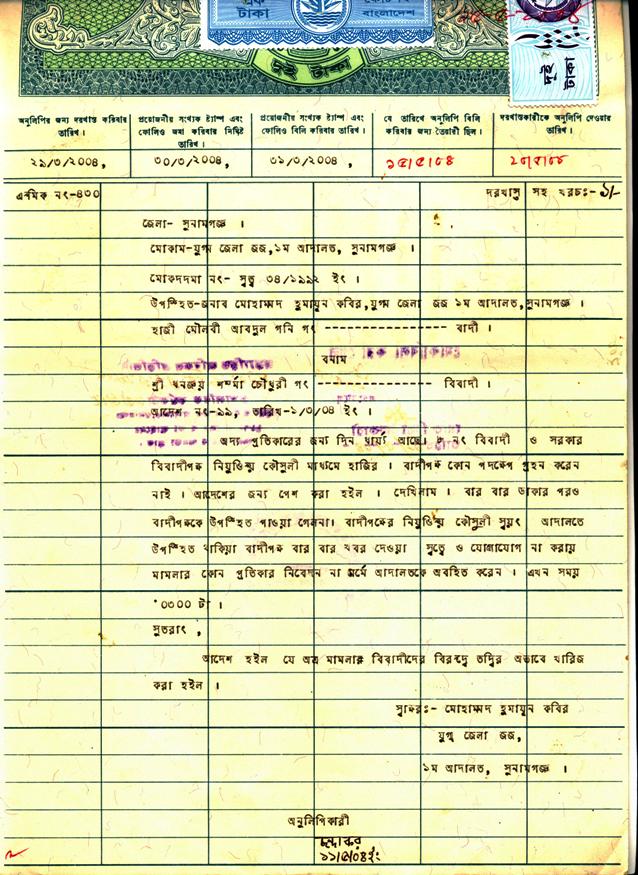 এক
টাকা
বাংলাদেশ
দুই টাকা
দুই
টাকা
অনুলিপির জন্য দরখাস্ত করিবার তারিখ।
প্রয়োজনীয় সংখ্যক ষ্ট্যাম্প এবং ফোলিও জমা করিবার নির্দিষ্ট তারিখ।
প্রয়োজনীয় সংখ্যক ষ্ট্যাম্প এবং ফোলিও বিলি করিবার তারিখ।
যে তারিখে অনুলিপি বিলি করিবার জন্য তৈয়ারী ছিল।
দরখাস্তকারীকে অনুলিপি দেওয়ার তারিখ।
২৯/৩/২০০৪,
৩০/৩/২০০৪,
৩১/৩/২০০৪,
নং-৪৩০
দরখাস্ত সহ খরচঃ- ১/-
জেলা- সুনামগঞ্জ ।
মোকাম-যুগ্ম জেলা জজ,১ম আদালত, সুনামগঞ্জ ।
মোকদ্দমা নং- স্বত্ব ৩৪/১৯৯২ ইং ।
উপস্হিত-জনাব মোহাম্মদ হুমায়ুন কবির,যুগ্ম জেলা জজ ১ম আদালত,সুনামগঞ্জ ।
হাজী মৌলবী আবদুল গনি গং ---------------- বাদী ।
বনাম
শ্রী ধনঞ্জয় শর্ম্মা চৌধুরী গং ---------------- বিবাদী ।
আদেশ নং-৯৯, তারিখ-১/৩/০৪ ইং ।
অদ্য প্রতিকারের জন্য দিন ধার্য্য আছে। ৮ নং বিবাদী ও সরকার
বিবাদীপক্ষ নিযুক্তিয় কৌসুলী মাধ্যমে হাজির । বাদীপক্ষ কোন পদক্ষেপ গ্রহন করেন
নাই । আদেশের জন্য পেশ করা হইল । দেখিলাম । বার বার ডাকার পরও
বাদীপক্ষকে উপস্হিত পাওয়া গেলনা। বাদীপক্ষের নিযুক্তিয় কৌসুলী স্বয়ং আদালতে
উপস্হিত থাকিয়া বাদীপক্ষ বার বার খবর দেওয়া সত্ত্বে ও যোগাযোগ না করায়
মামলার কোন প্রতিকার নিবেদন না মর্মে আদালতকে অবহিত করেন । এখন সময়
০৩০০ টা ।
সুতরাং ,
আদেশ হইল যে অত্র মামলার বিবাদীদের বিরুদ্ধে তদ্বির অভাবে খারিজ
করা হইল ।
স্বাক্ষরঃ- মোহাম্মদ হুমায়ুন কবির
যুগ্ম জেলা জজ,
১ম আদালত, সুনামগঞ্জ ।
অনুলিপিকারী